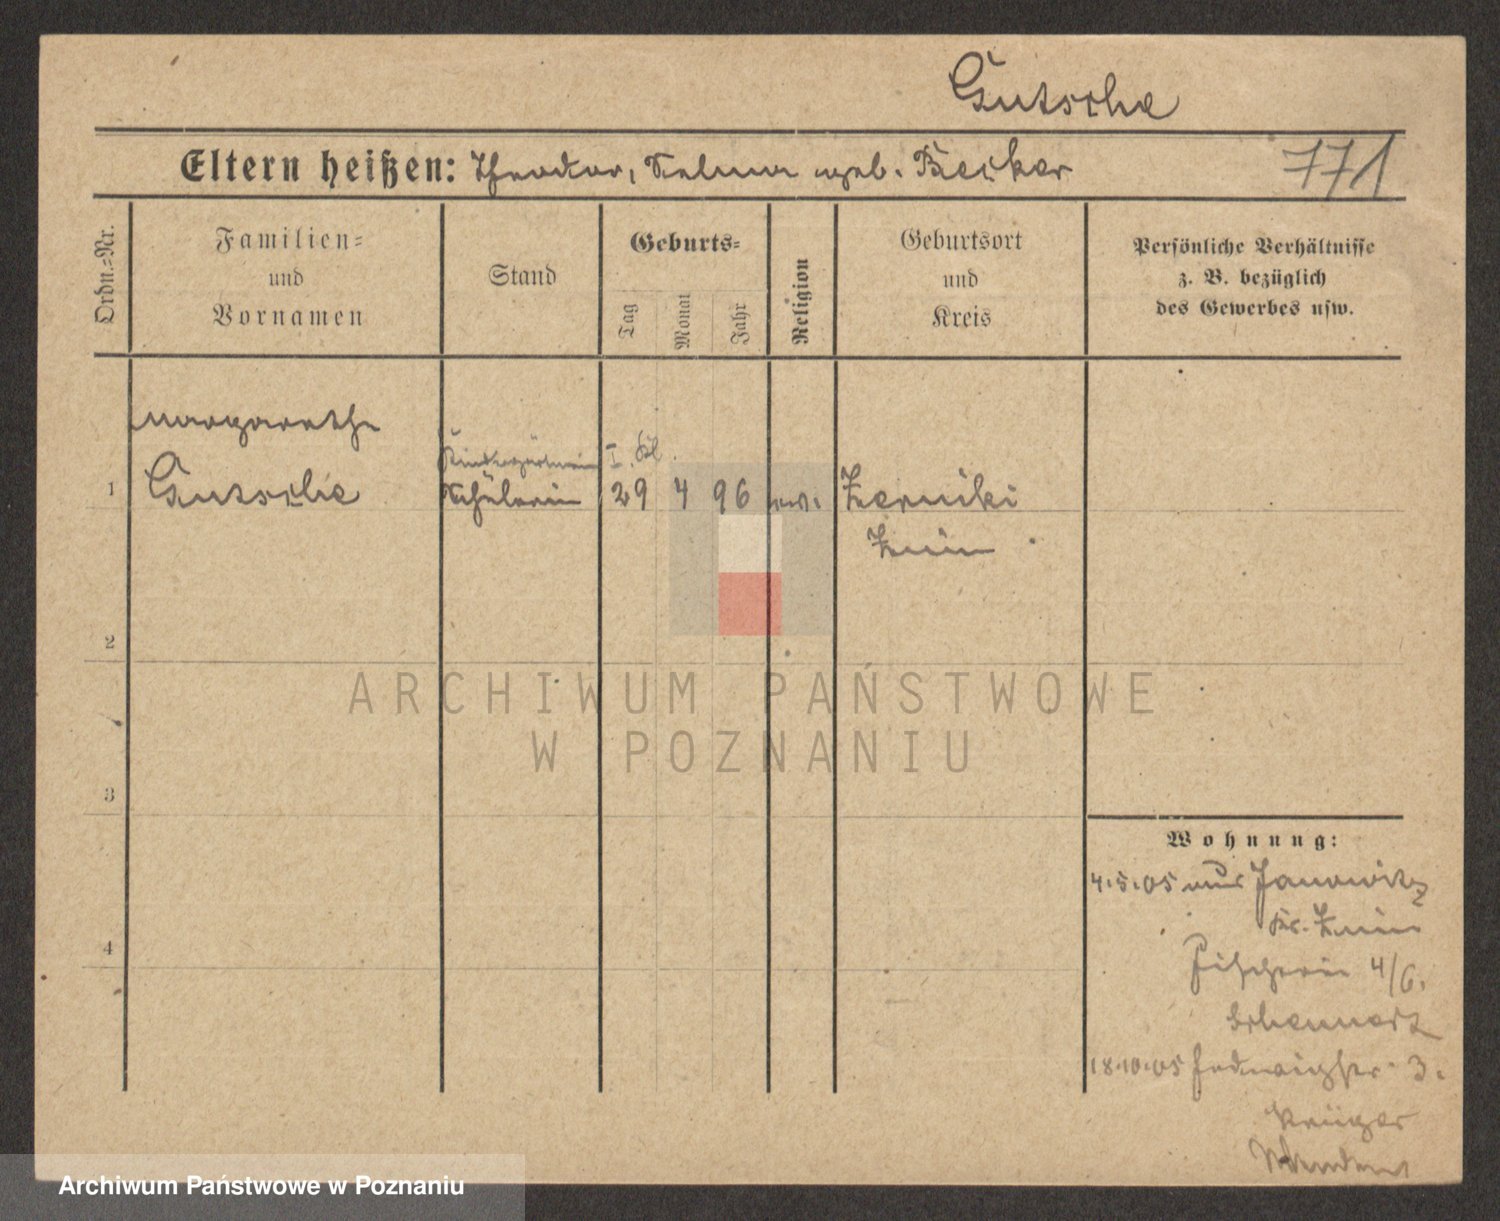 Gutsche
Eltern heißen: Theodor, Selma geb. Becker
771
Ordn.=Nr.
Familien=
und
Vornamen
Stand
Geburts=
Tag
Monat
Jahr
Religion
Geburtsort
und
Kreis
Persönliche Verhältnisse
z. B. bezüglich
des Gewerbes usw.
Margarethe
Kindergärtnerin I. Kl.
1
Gutsche
Schülerin
29
4
96
ev.
Zerniki
Znin
2
ARCHIWUM PAŃSTWOWE
W POZNANIU
3
Wohnung:
4.5.05 aus Janowitz
Kr. Znin
4
Fischerei 4/6.
18.10.05 Hedwigstr. 3.
Krüger
Archiwum Państwowe w Poznaniu